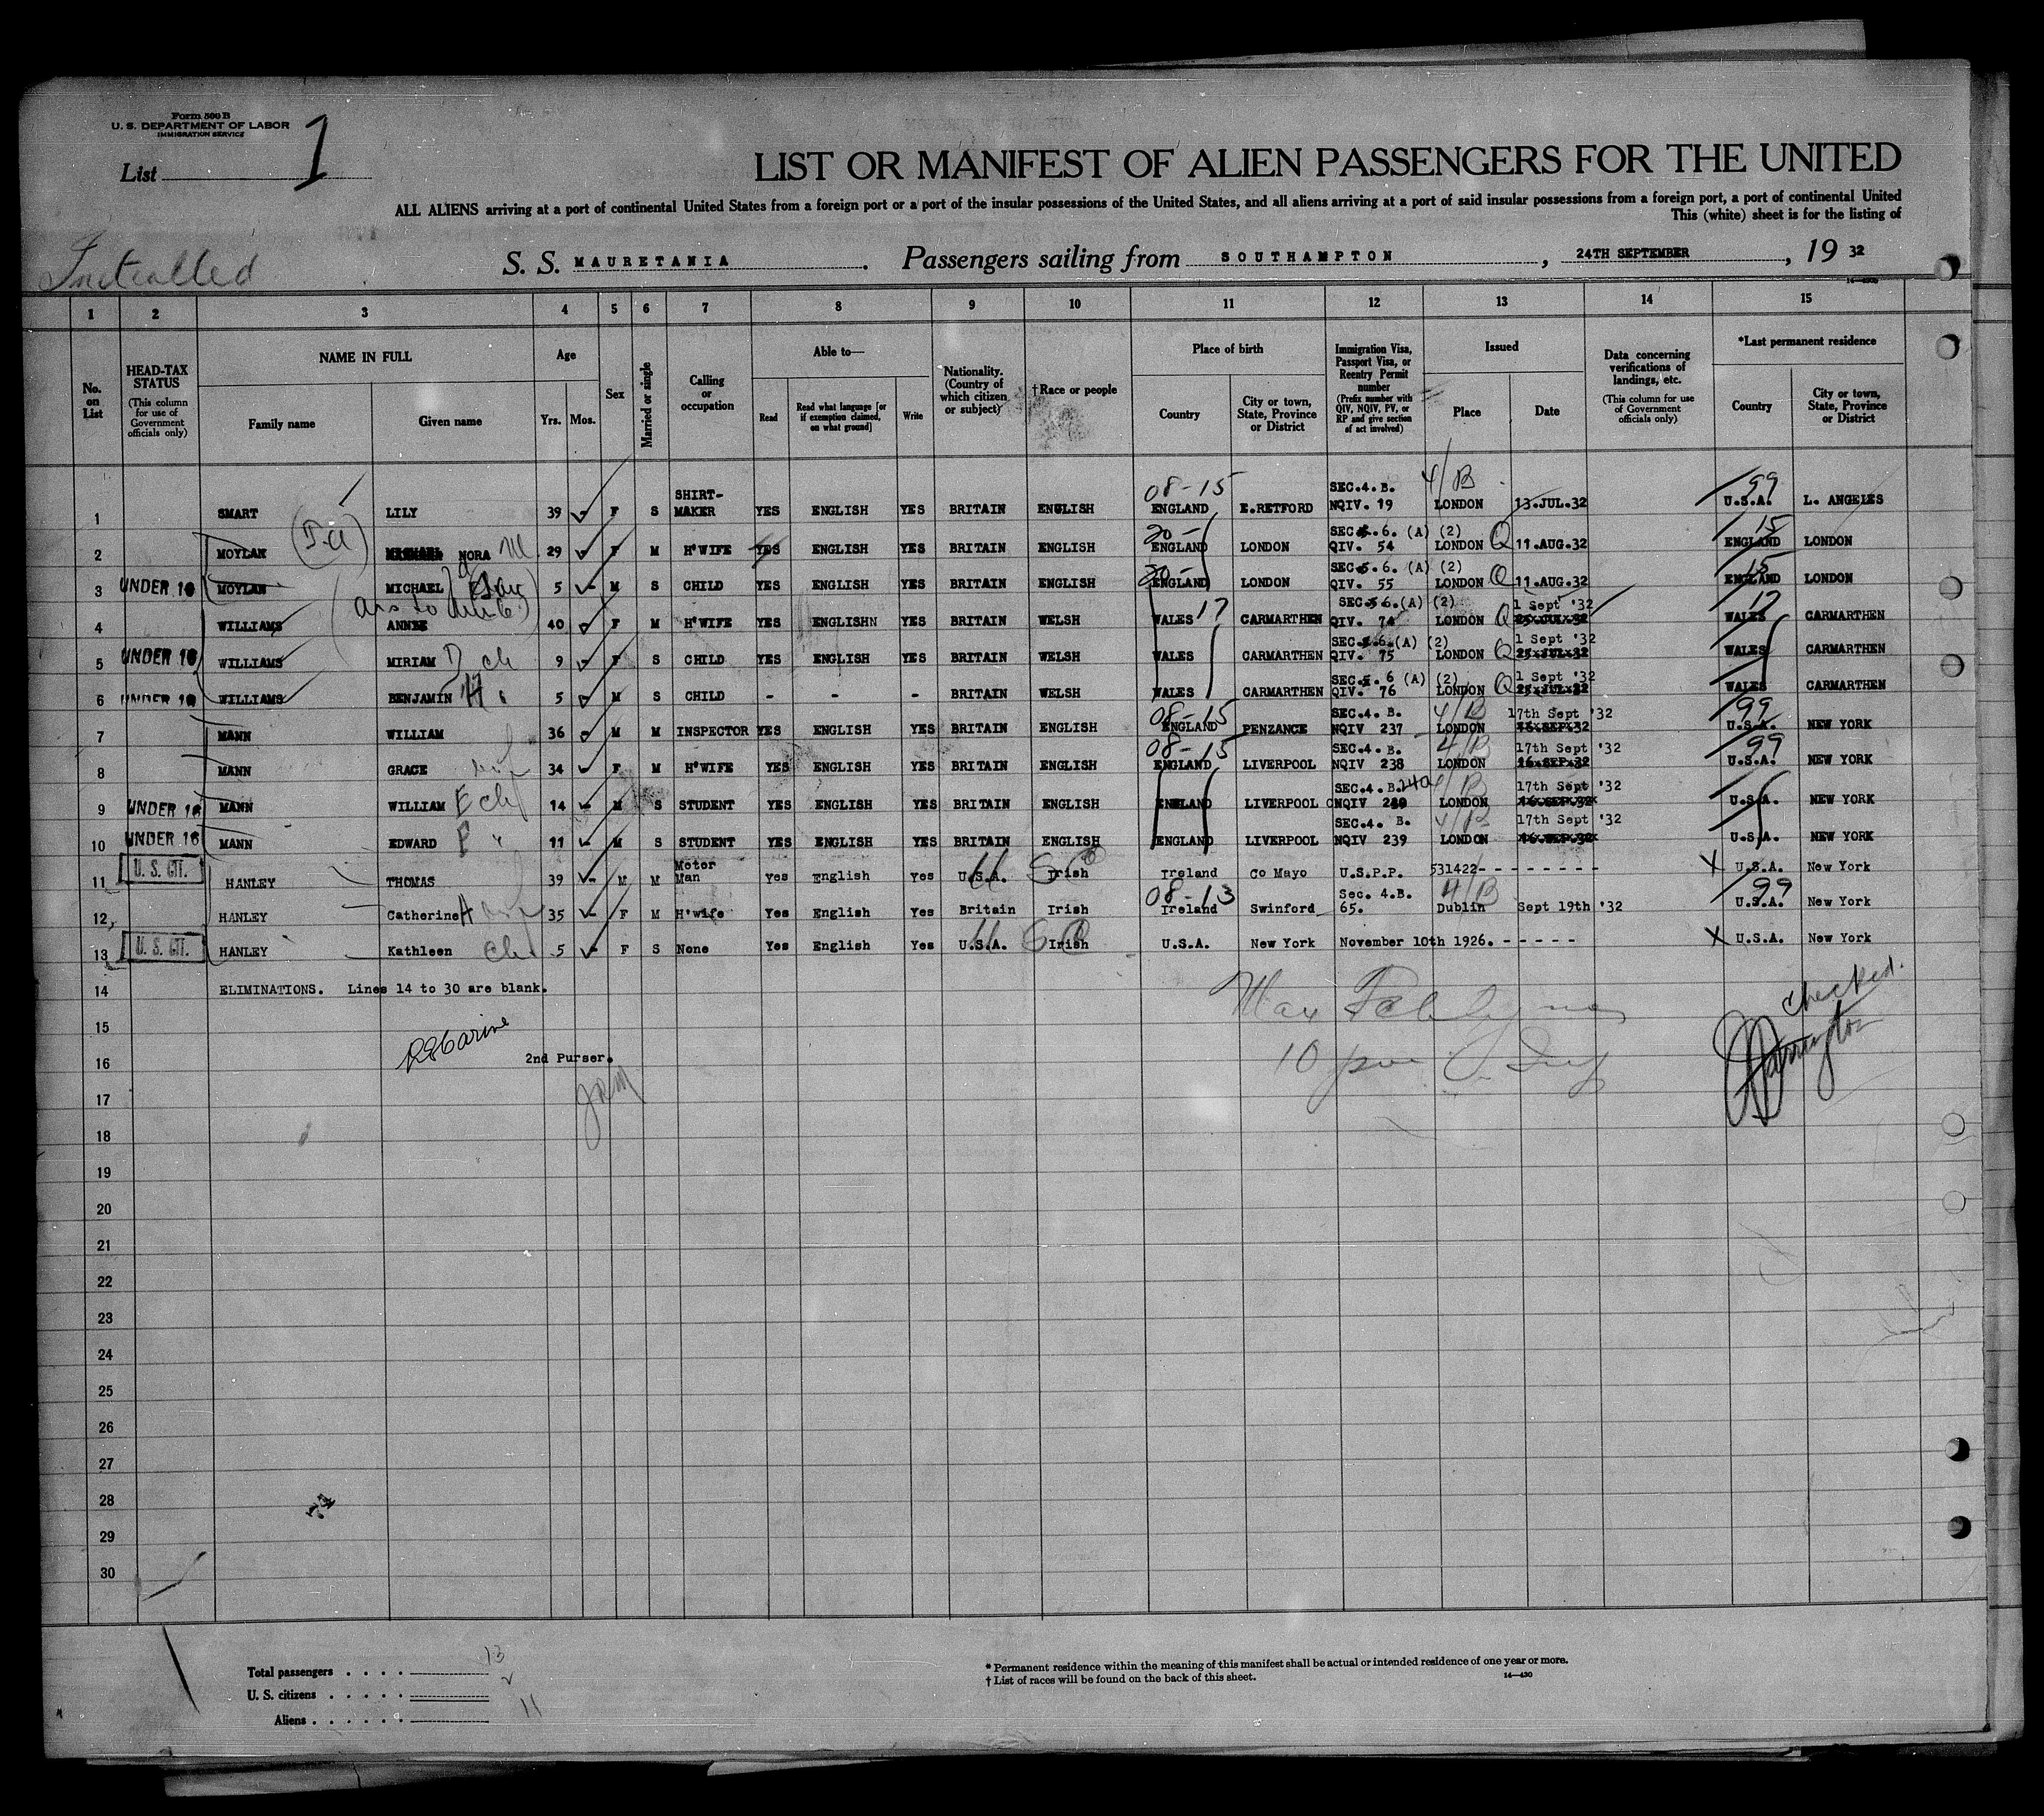 Form 500 B
U. S. DEPARTMENT OF LABOR
IMMIGRATION SERVICE
List 1
LIST OR MANIFEST OF ALIEN PASSENGERS FOR THE UNITED
ALL ALIENS arriving at a port of continental United States from a foreign port or a port of the insular possessions of the United States, and all aliens arriving at a port of said insular possessions from a foreign port, a port of continental United
This (white) sheet is for the listing of
Initialled
S. S. MAURETANIA. Passengers sailing from SOUTHAMPTON, 24TH SEPTEMBER, 19 32
1 2 3 4 5 6 7 8 9 10 11 12 13 14 15
No. on List
HEAD-TAX STATUS (This column for use of Government officials only)
NAME IN FULL Family name Given name
Age Yrs. Mos.
Sex
Married or single
Calling or occupation
Able to— Read Read what language [or if exemption claimed, on what ground] Write
Nationality. (Country of which citizen or subject)
†Race or people
Place of birth Country City or town, State, Province or District
Immigration Visa, Passport Visa, or Reentry Permit number (Prefix number with QIV, NQIV, PV, or RP and give section of act involved)
Issued Place Date
Data concerning verifications of landings, etc. (This column for use of Government officials only)
*Last permanent residence Country City or town, State, Province or District
1 SMART LILY 39 F S SHIRT-MAKER YES ENGLISH YES BRITAIN ENGLISH 08-15 ENGLAND E.RETFORD SEC.4. B. NQIV. 19 4/B LONDON 13.JUL.32 99 U.S.A. L. ANGELES
2 MOYLAN NORA M 29 F M H'WIFE YES ENGLISH YES BRITAIN ENGLISH 20- ENGLAND LONDON SEC.6. (A) (2) QIV. 54 LONDON Q 11.AUG.32 15 ENGLAND LONDON
3 UNDER 16 MOYLAN MICHAEL J 5 M S CHILD YES ENGLISH YES BRITAIN ENGLISH 20- ENGLAND LONDON SEC.6. (A) (2) QIV. 55 LONDON Q 11.AUG.32 15 ENGLAND LONDON
4 WILLIAMS ANNIE 40 F M H'WIFE YES ENGLISHN YES BRITAIN WELSH WALES 17 CARMARTHEN SEC.6.(A) (2) QIV. 74 LONDON Q 1 Sept '32 25 JUL 32 17 WALES CARMARTHEN
5 UNDER 16 WILLIAMS MIRIAM D ch 9 F S CHILD YES ENGLISH YES BRITAIN WELSH WALES CARMARTHEN SEC.6.(A) (2) QIV. 75 LONDON Q 1 Sept '32 25 JUL 32 WALES CARMARTHEN
6 UNDER 16 WILLIAMS BENJAMIN H " 5 M S CHILD - - - BRITAIN WELSH WALES CARMARTHEN SEC. 6 (A) (2) QIV. 76 LONDON Q 1 Sept '32 25 JUL 32 WALES CARMARTHEN
7 MANN WILLIAM 36 M M INSPECTOR YES ENGLISH YES BRITAIN ENGLISH 08-15 ENGLAND PENZANCE SEC.4. B. NQIV 237 4/B LONDON 17th Sept '32 16 SEP 32 99 U.S.A. NEW YORK
8 MANN GRACE wife 34 F M H'WIFE YES ENGLISH YES BRITAIN ENGLISH 08-15 ENGLAND LIVERPOOL SEC.4. B. NQIV 238 4/B LONDON 17th Sept '32 16 SEP 32 99 U.S.A. NEW YORK
9 UNDER 16 MANN WILLIAM E ch 14 M S STUDENT YES ENGLISH YES BRITAIN ENGLISH ENGLAND LIVERPOOL SEC.4. B. 240 NQIV 4/B LONDON 17th Sept '32 16 SEP 32 U.S.A. NEW YORK
10 UNDER 16 MANN EDWARD F " 11 M S STUDENT YES ENGLISH YES BRITAIN ENGLISH ENGLAND LIVERPOOL SEC.4. B. NQIV 239 4/B LONDON 17th Sept '32 16 SEP 32 U.S.A. NEW YORK
11 U. S. CIT. HANLEY THOMAS 39 M M Motor Man Yes English Yes U.S.A. USC Irish Ireland Co Mayo U.S.P.P. 531422- - - - - - - - - X U.S.A. New York
12 HANLEY Catherine A wife 35 F M H'wife Yes English Yes Britain Irish 08-13 Ireland Swinford Sec. 4.B. 65. 4/B Dublin Sept 19th '32 99 U.S.A. New York
13 U. S. CIT. HANLEY Kathleen ch 5 F S None Yes English Yes U.S.A. USC Irish U.S.A. New York November 10th 1926. - - - - - X U.S.A. New York
14 ELIMINATIONS. Lines 14 to 30 are blank.
checked.
15
16 2nd Purser.
17
18
19
20
21
22
23
24
25
26
27
28
29
30
Total passengers . . . . 13
U. S. citizens . . . . . 2
Aliens . . . . . . 11
* Permanent residence within the meaning of this manifest shall be actual or intended residence of one year or more.
† List of races will be found on the back of this sheet.
14—430